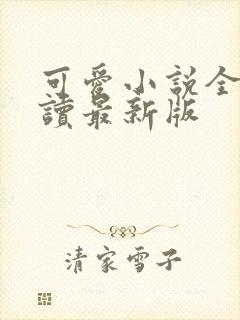 可愛小說全
讀最新版
清家雪子